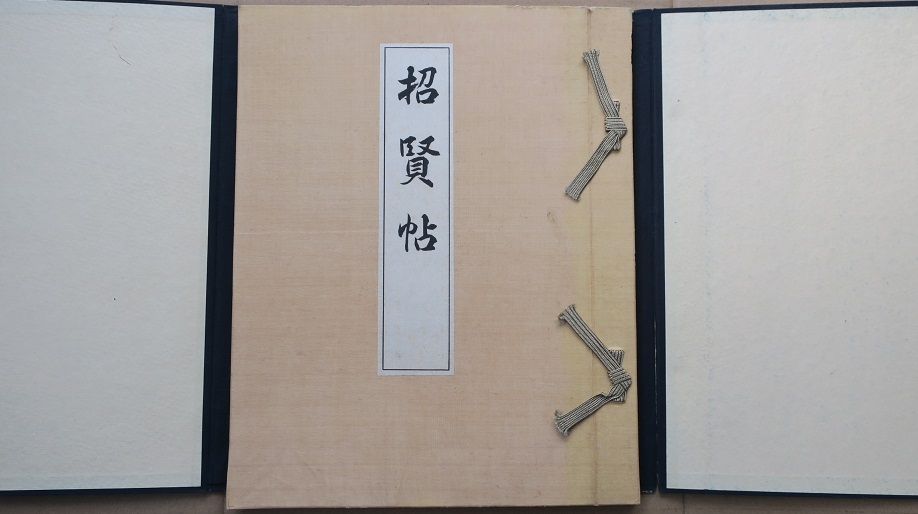 招賢帖